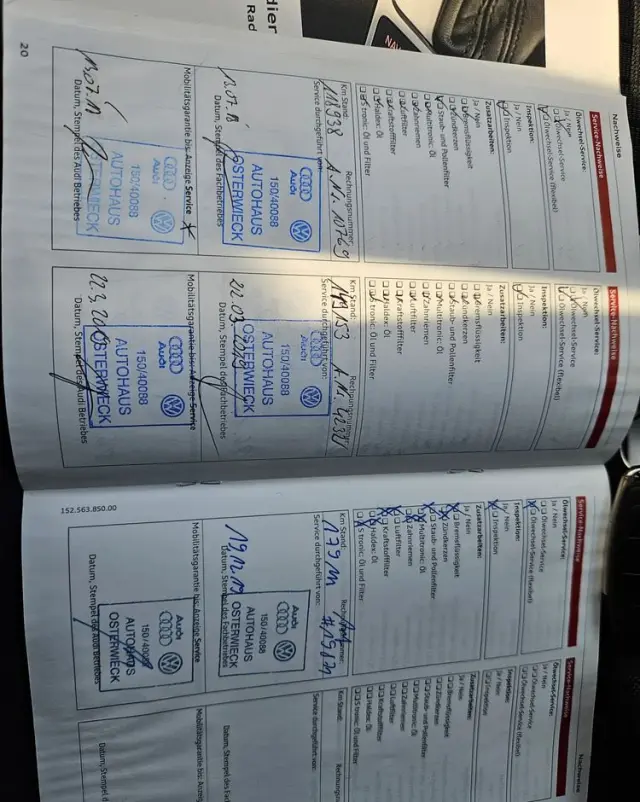 dier
Rad
NAV
20
Nachweise
Service-Nachweise
Ölwechsel-Service:
Ja / Nein
Ölwechsel-Service
Ölwechsel-Service (flexibel)
Inspektion:
Ja / Nein
Inspektion
Zusatzarbeiten:
Ja / Nein
Bremsflüssigkeit
Zündkerzen
Staub- und Pollenfilter
Multitronic: Öl
Zahnriemen
Luftfilter
Kraftstofffilter
Haldex: Öl
S tronic: Öl und Filter
Km Stand:
Rechnungsnummer:
118938
Service durchgeführt von:
13.07.18
Audi
150/40088
AUTOHAUS
OSTERWIECK
Datum, Stempel des Fachbetriebes
Mobilitätsgarantie bis: Anzeige Service
Audi
150/40088
AUTOHAUS
OSTERWIECK
Datum, Stempel des Audi Betriebes
Service-Nachweise
Ölwechsel-Service:
Ja / Nein
Ölwechsel-Service
Ölwechsel-Service (flexibel)
Inspektion:
Ja / Nein
Inspektion
Zusatzarbeiten:
Ja / Nein
Bremsflüssigkeit
Zündkerzen
Staub- und Pollenfilter
Multitronic: Öl
Zahnriemen
Luftfilter
Kraftstofffilter
Haldex: Öl
S tronic: Öl und Filter
Km Stand:
Service durchgeführt von:
Audi
150/40088
AUTOHAUS
OSTERWIECK
Datum, Stempel des Fachbetriebes
Mobilitätsgarantie bis: Anzeige Service
Audi
150/40088
AUTOHAUS
OSTERWIECK
Datum, Stempel des Audi Betriebes
152.563.850.00
Service-Nachweise
Ölwechsel-Service:
Ja / Nein
Ölwechsel-Service
Ölwechsel-Service (flexibel)
Inspektion:
Ja / Nein
Inspektion
Zusatzarbeiten:
Ja / Nein
Bremsflüssigkeit
Zündkerzen
Staub- und Pollenfilter
Multitronic: Öl
Zahnriemen
Luftfilter
Kraftstofffilter
Haldex: Öl
S tronic: Öl und Filter
Km Stand:
Service durchgeführt von:
19.12.19
Audi
150/40088
AUTOHAUS
OSTERWIECK
Datum, Stempel des Fachbetriebes
Mobilitätsgarantie bis: Anzeige Service
Audi
150/40088
AUTOHAUS
OSTERWIECK
Datum, Stempel des Audi Betriebes
Nachweise
Service-Nachweise
Ölwechsel-Service:
Ja / Nein
Ölwechsel-Service
Ölwechsel-Service (flexibel)
Inspektion:
Ja / Nein
Inspektion
Zusatzarbeiten:
Ja / Nein
Bremsflüssigkeit
Zündkerzen
Staub- und Pollenfilter
Multitronic: Öl
Zahnriemen
Luftfilter
Kraftstofffilter
Haldex: Öl
S tronic: Öl und Filter
Km Stand:
Service durchgeführt von:
Datum, Stempel des Fa
Mobilitätsgarantie bis: Anzeig
Datum, Stempel des